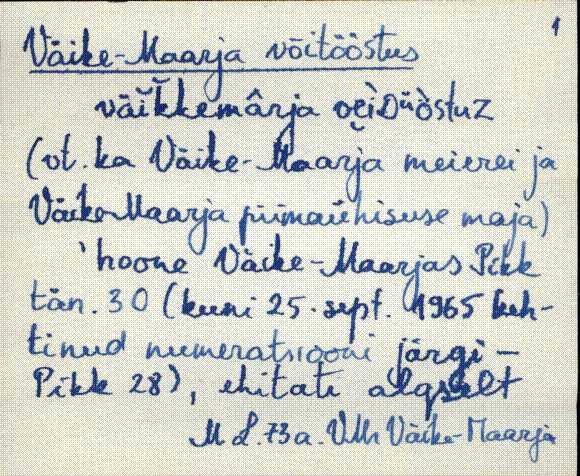 1
Väike-Maarja võitööstus
väikkemârja
(vt. ka Väike-Maarja meierei ja
Väike-Maarja piimaühisuse maja)
'hoone Väike-Maarjas Pikk
tän. 30 (kuni 25. sept. 1965 keh-
tinud numeratsiooni järgi –
Pikk 28), ehitati algselt
73a. VMr Väike-Maarja